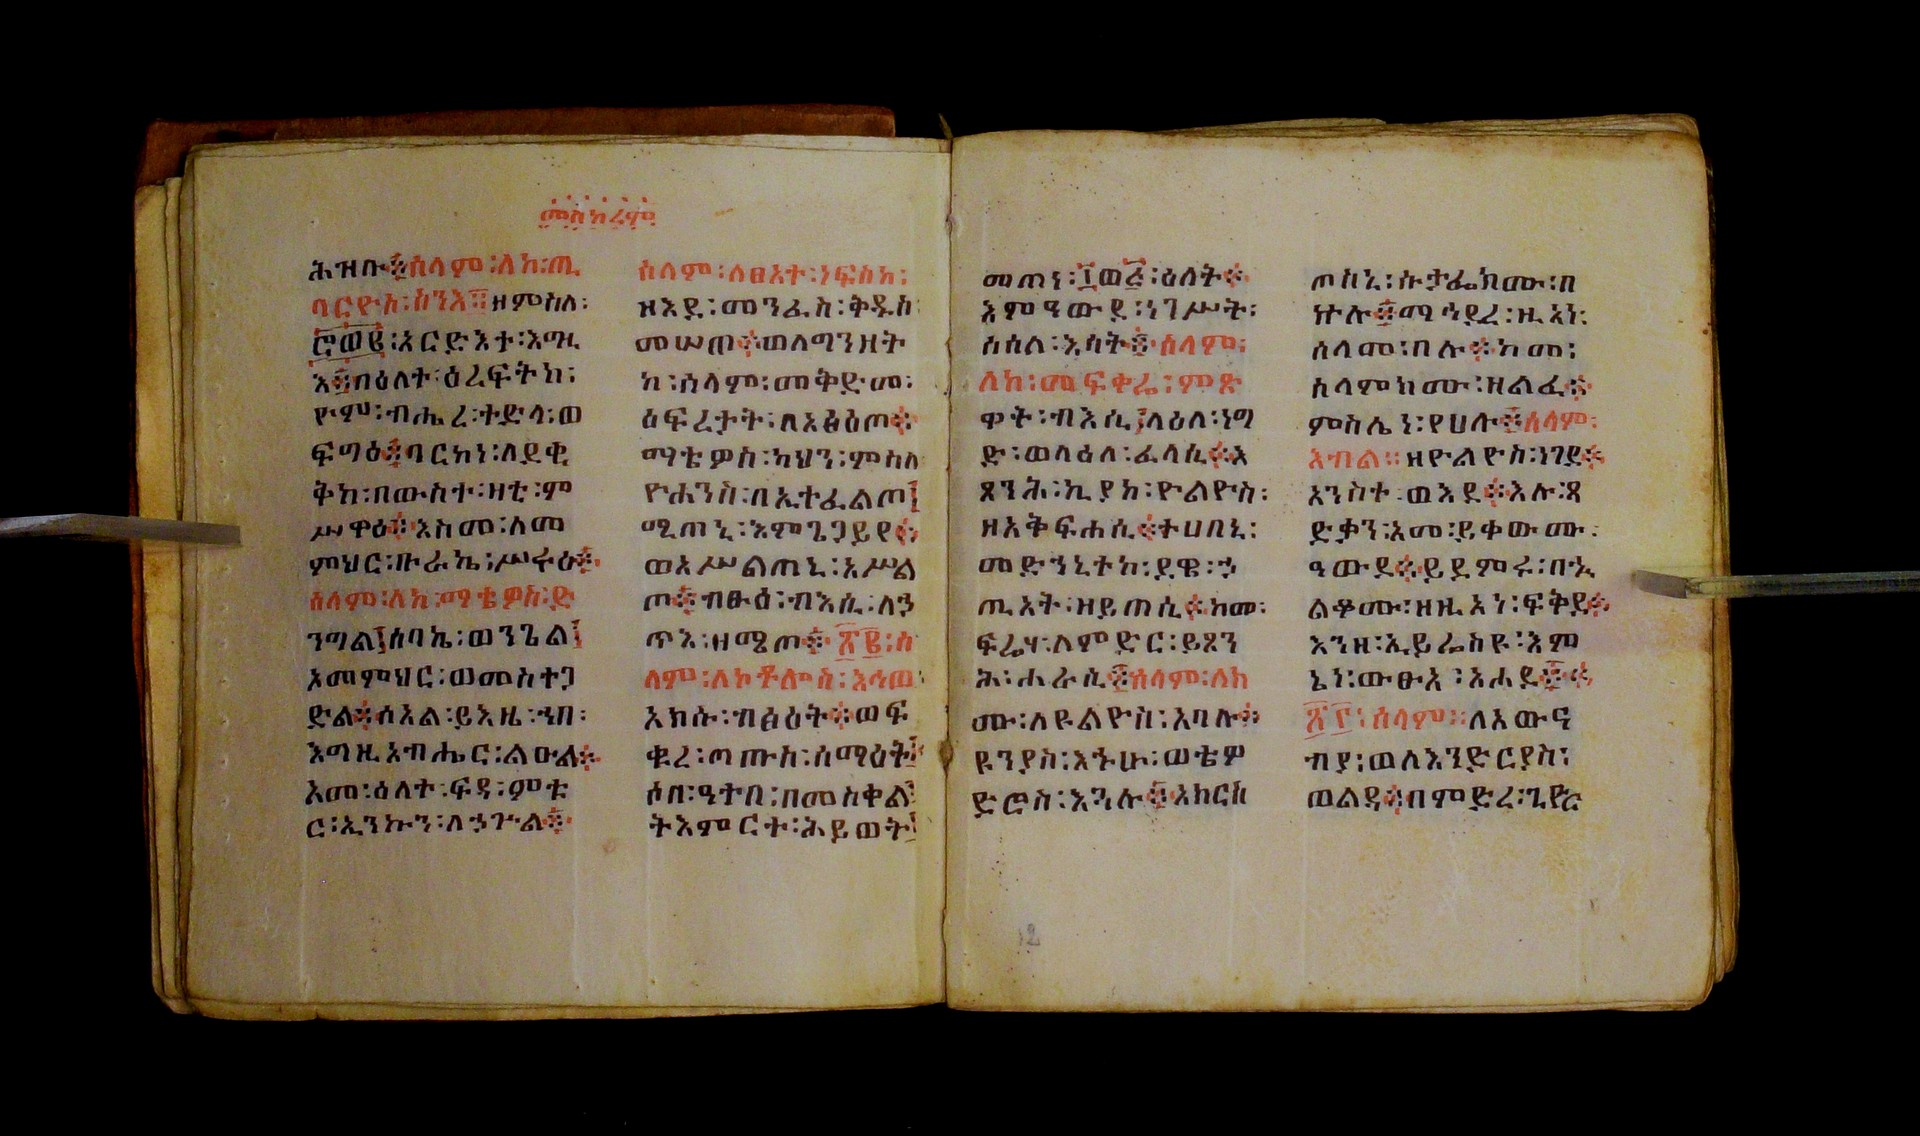 መስከረም
ሕዝቡ፨ሰላም፡ለከ፡ጢ
ባርዮስ፡ስንእ፡፡ዘምስለ፡
፸ወ፪፡አርድእት፡እማዚ
እ፨በዕለት፡ዕረፍትከ፡
ዮም፡ብሔረ፡ተድላ፡ወ
ፍግዕ፨ባርከነ፡ለደቂ
ቅከ፡በውስተ፡ዛቲ፡ም
ሥዋዕ፨እስመ፡ለመ
ምህር፡ቡራኬ፡ሥሩዕ፨
ሰላም፡ለከ፡ማቴዎስ፡ድ
ንግል፤ሰባኬ፡ወንጌል፤
አመምህር፡ወመስተጋ
ድል፨ሰአል፡ይእዜ፡ኀበ፡
እግዚአብሔር፡ልዑል፨
አመ፡ዕለተ፡ፍዳ፡ምቱ
ር፡ኢንኩን፡ለኃጕል፨
ሰላም፡ለፀአተ፡ነፍስከ፡
ዘእደ፡መንፈስ፡ቅዱስ፡
መሠጠ፨ወለግንዘት
ከ፡ሰላም፡መቅድመ፡
ዕፍረታት፡ለአፅዕጦ፨
ማቴዎስ፡ካህን፡ምስለ
ዮሐንስ፡በኢተፈልጦ፤
ሚጠኒ፡እምጌጋይየ፨
ወአሥልጠኒ፡አሥል
ጦ፨ብፁዕ፡ብእሲ፡ለኃ
ጥእ፡ዘሜጠ፨፳፪፡ሰ
ላም፡ለኮቶሎስ፡እኅወ፡
አክሱ፡ብፅዕት፨ወፍ
ቁረ፡ጣጡስ፡ሰማዕት፤
ሶበ፡ዓተበ፡በመስቀል፤
ትእምርተ፡ሕይወት፤
መጠነ፡፲ወ፭፡ዕለት፨
እምዓውደ፡ነገሥት፡
ሰሰለ፡እሳት፨ሰላም፡
ለከ፡መፍቀሬ፡ምጽ
ዋት፡ብእሲ፤ላዕለ፡ነግ
ድ፡ወላዕለ፡ፈላሲ፨አ
ጸንሕ፡ኪያከ፡ዮልዮስ፡
ዘአቅፍሐሲ፨ተሀበኒ፡
መድኀኒተከ፡ደዌ፡ኃ
ጢአት፡ዘይጠሲ፨ከመ፡
ፍሬሃ፡ለምድር፡ይጸን
ሕ፡ሐራሲ፨ሰላም፡ለክ
ሙ፡ለዩልዮስ፡አባሉ፨
ዩንያስ፡እኁሁ፡ወቴዎ
ድሮስ፡እጓሉ፨አክርስ
ጦስኒ፡ሱታፌክሙ፡በ
ኵሉ፨ማኅደረ፡ዚአነ፡
ሰላመ፡በሉ፨ከመ፡
ሰላምክሙ፡ዘልፈ፨
ምስሌነ፡የሀሉ፨ሰላም፡
እብል፡፡ዘዮልዮስ፡ነገደ፨
አንስተ፡ወእደ፨እሉ፡ጻ
ድቃን፡አመ፡ይቀውሙ፡
ዓውደ፨ይደምሩ፡በኂ
ልቆሙ፡ዘዚአነ፡ፍቅደ፨
እንዘ፡ኢይሬስዩ፡እም
ኔነ፡ውፁአ፡አሐደ፨
፳፫፡ሰላም፡፡ለአውና
ብያ፡ወለእንድርያስ፡
ወልዳ፨በምድረ፡ጊዮር
12